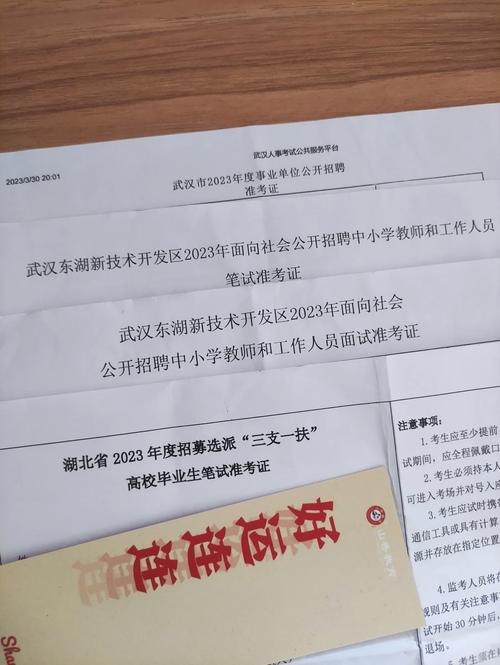 武汉人事考试公共服务平台
2023/3/30 20:01
武汉市2023年度事业单位公开招聘
准考证
武汉东湖新技术开发区2023年面向社会公开招聘中小学教师和工作人员
笔试准考证
武汉东湖新技术开发区2023年面向社会
公开招聘中小学教师和工作人员面试准考证
湖北省 2023 年度招募选派“三支一扶”
高校毕业生笔试准考证
注意事项：
1. 考生应至少提前
试期间，应全程佩戴口
2. 考生必须持本人
可进入考场并对号入
3. 考生应试时携
通信工具或具有计算
源并存放在指定位置
4. 监考人员将在
规则及有关注意事
试开始 30 分钟后，
退场。
5. 考生须在
好运连连
Sha